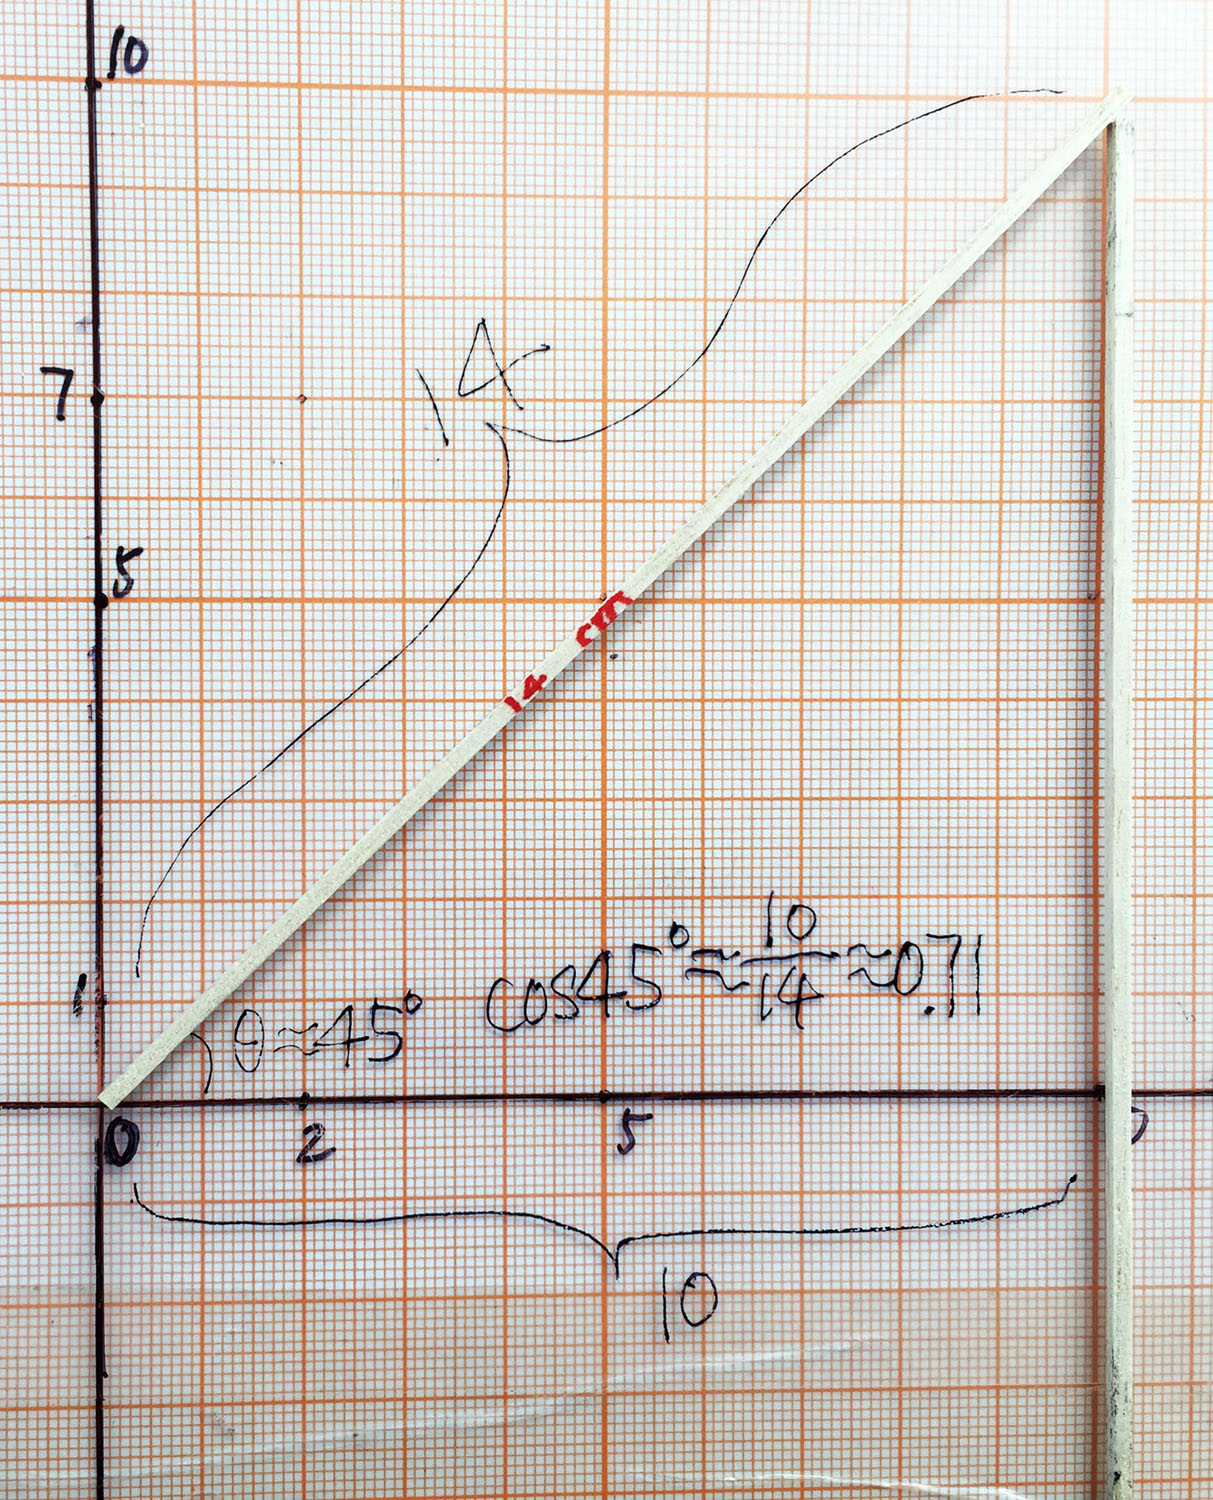 10
14
7
5
14 cm
1
θ≈45° cos45°≈10/14≈0.71
0 2 5
10